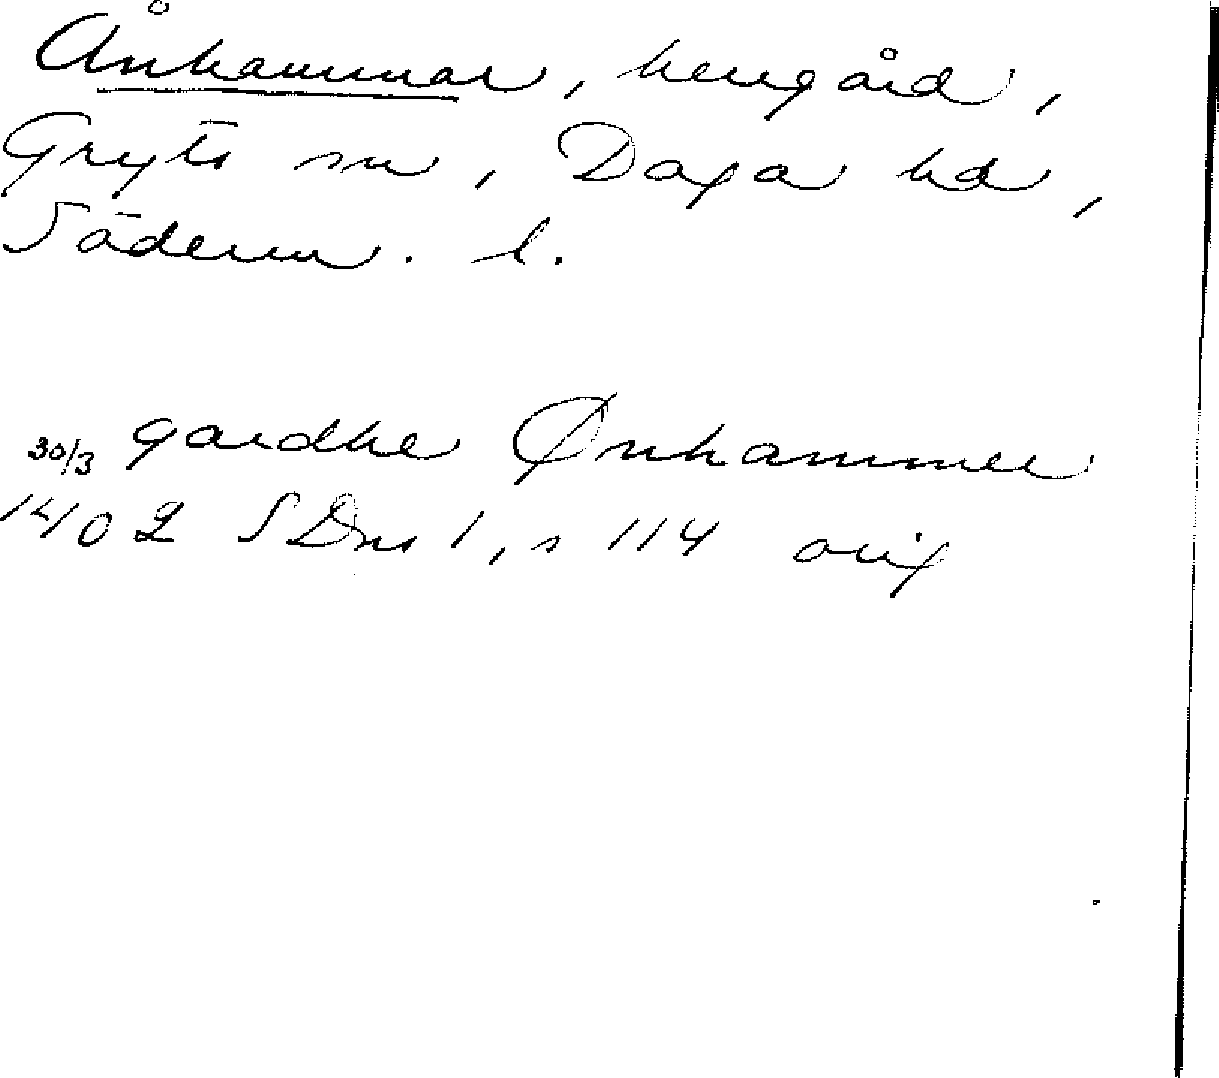 Ånhammar, herrgård,
Gryts sn, Daga hd,
Söderm. l.
30/3 gardhe Ønhammer
1402 SDns 1, s 114 orig